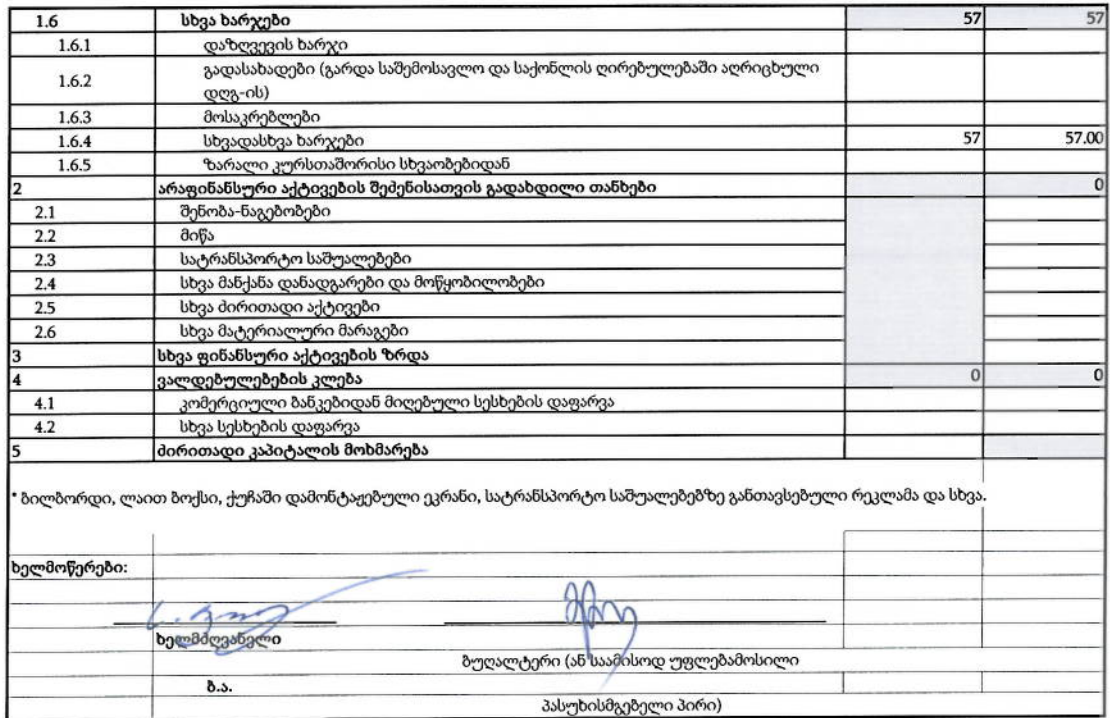 1.6 სხვა ხარჯები 57 57
1.6.1 დაზღვევის ხარჯი
1.6.2 გადასახადები (გარდა საშემოსავლო და საქონლის ღირებულებაში აღრიცხული
დღგ-ის)
1.6.3 მოსაკრებლები
1.6.4 სხვადასხვა ხარჯები 57 57.00
1.6.5 ზარალი კურსთაშორისი სხვაობებიდან
2 არაფინანსური აქტივების შეძენისათვის გადახდილი თანხები 0
2.1 შენობა-ნაგებობები
2.2 მიწა
2.3 სატრანსპორტო საშუალებები
2.4 სხვა მანქანა დანადგარები და მოწყობილობები
2.5 სხვა ძირითადი აქტივები
2.6 სხვა მატერიალური მარაგები
3 სხვა ფინანსური აქტივების ზრდა
4 ვალდებულებების კლება 0 0
4.1 კომერციული ბანკებიდან მიღებული სესხების დაფარვა
4.2 სხვა სესხების დაფარვა
5 ძირითადი კაპიტალის მოხმარება
* ბილბორდი, ლაით ბოქსი, ქუჩაში დამონტაჟებული ეკრანი, სატრანსპორტო საშუალებებზე განთავსებული რეკლამა და სხვა.
ხელმოწერები:
ხელმძღვანელი
ბუღალტერი (ან საამისოდ უფლებამოსილი
ბ.ა.
პასუხისმგებელი პირი)